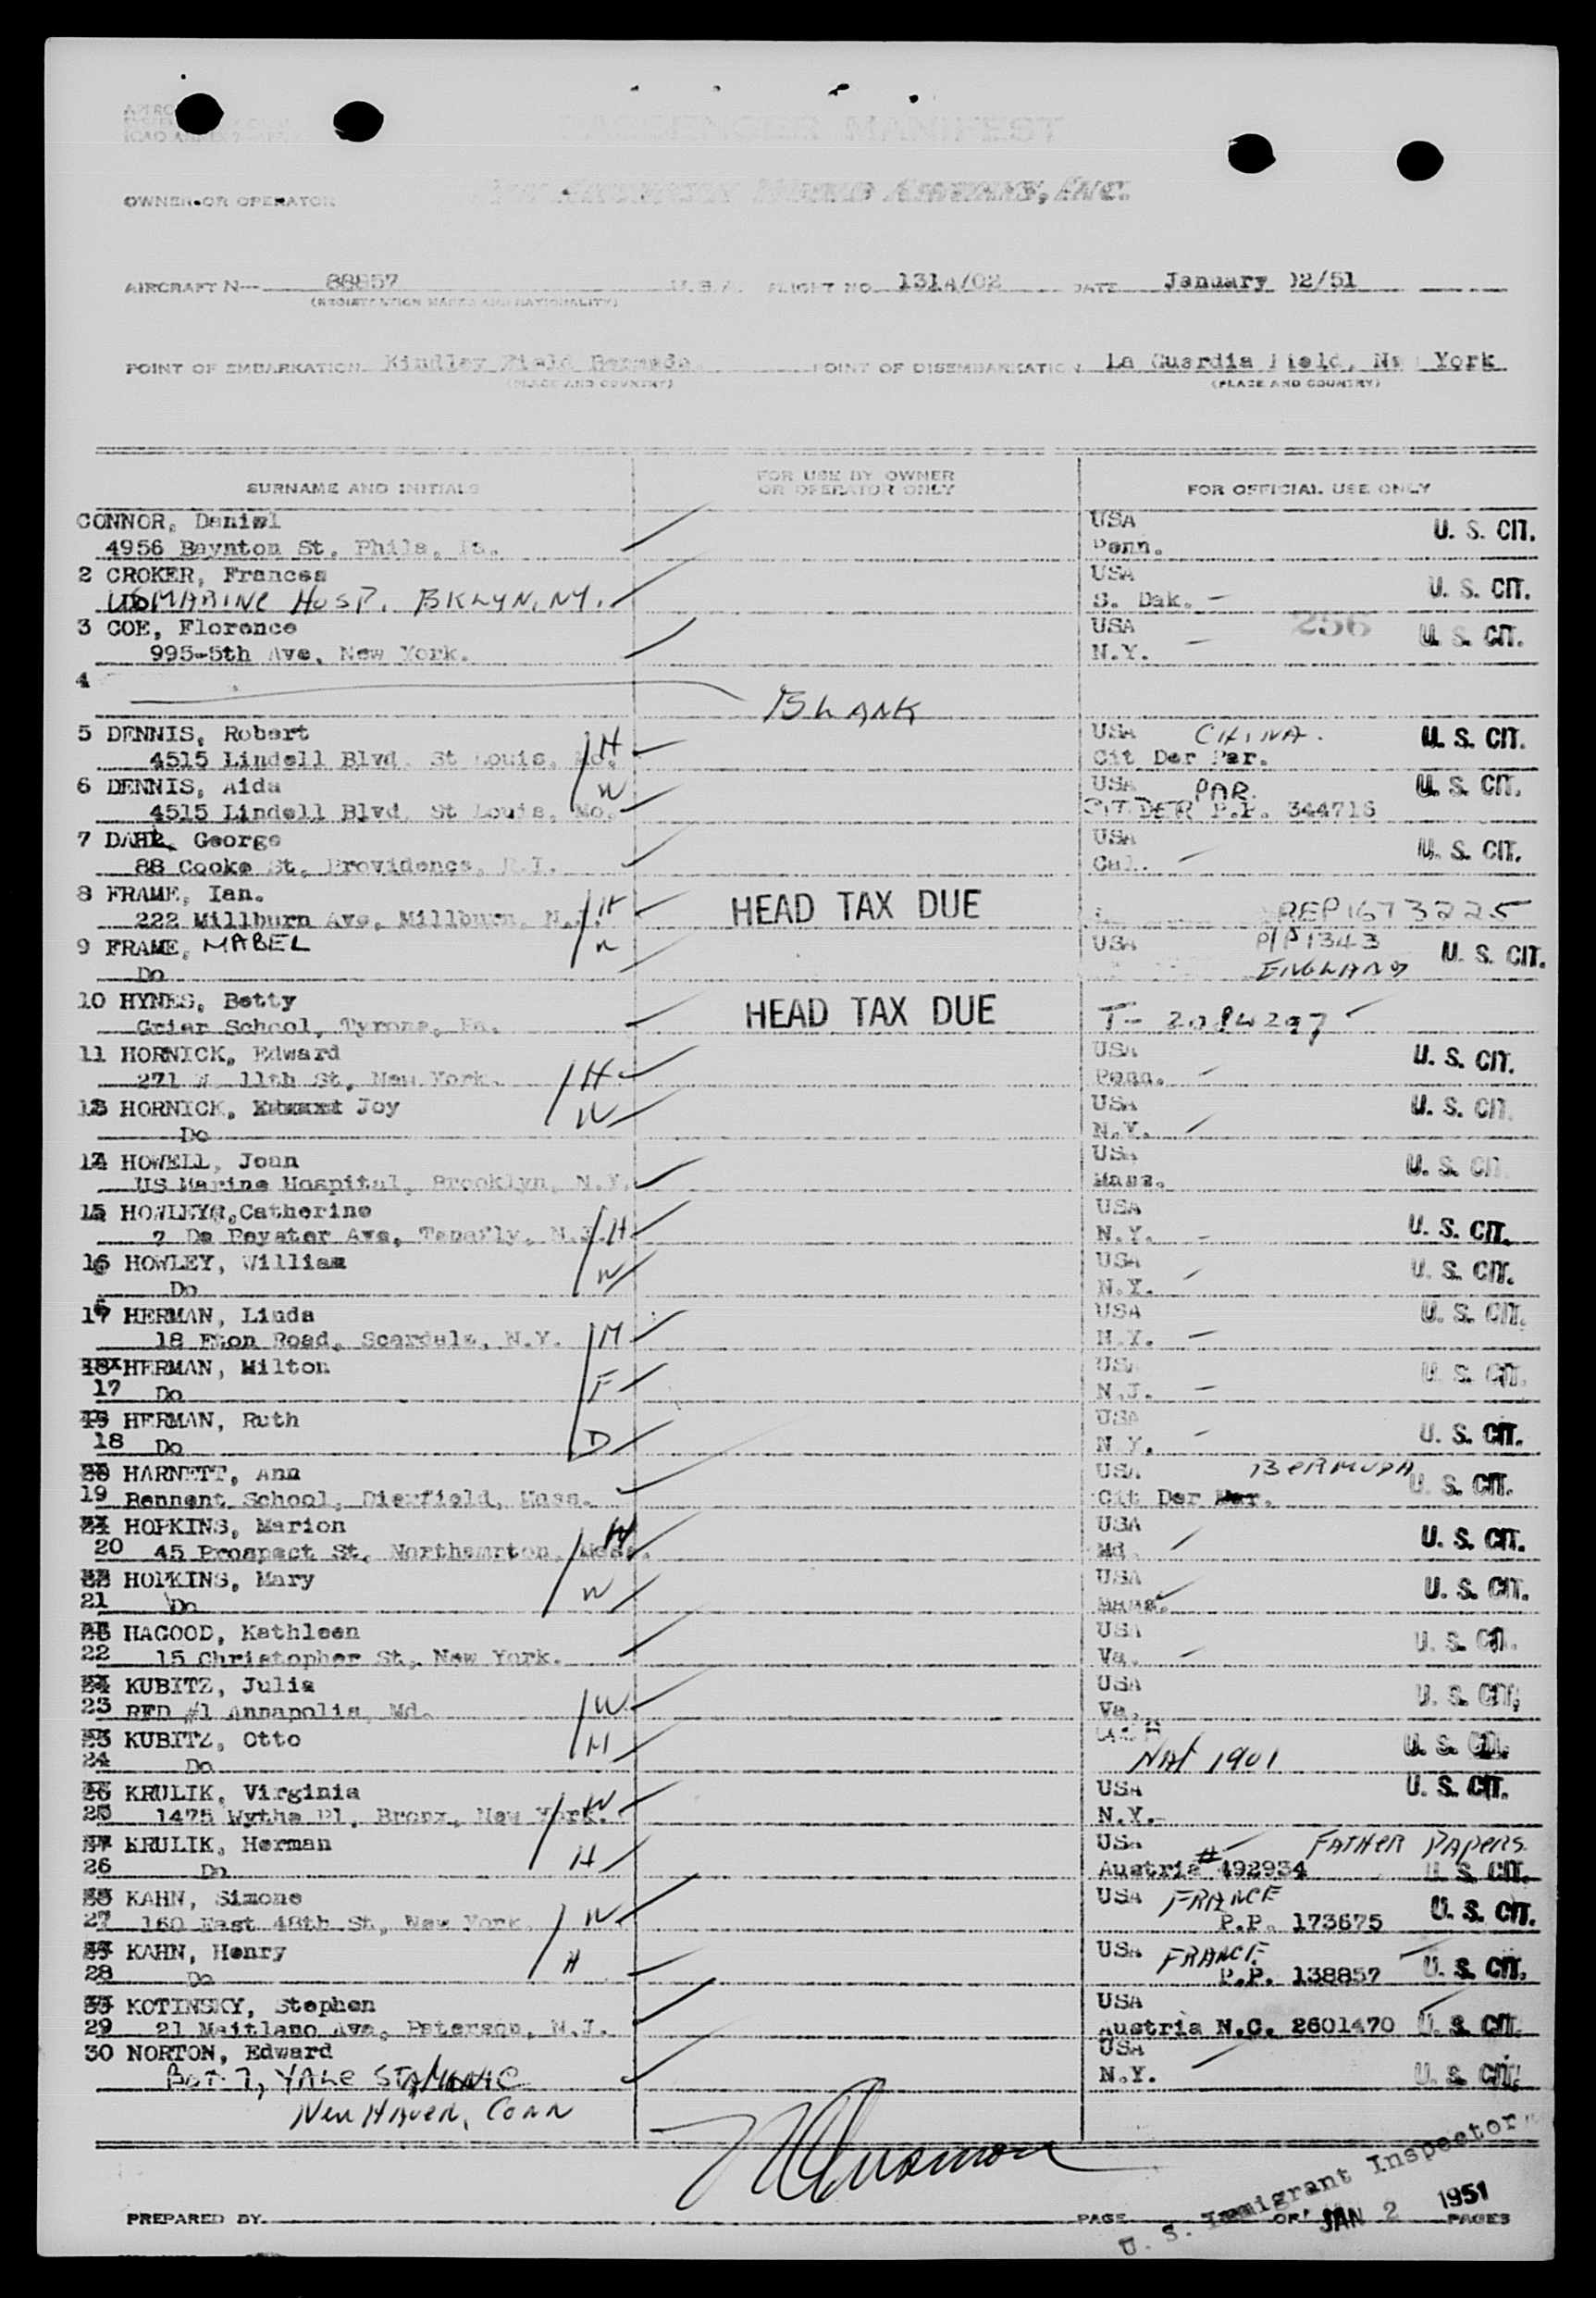 PASSENGER MANIFEST
OWNER OR OPERATOR
AIRCRAFT N— 88857 U.S.A. FLIGHT NO. 131A/02 DATE January 02/51
(REGISTRATION MARKS AND NATIONALITY)
POINT OF EMBARKATION Kindley Field Bermuda. POINT OF DISEMBARKATION La Guardia Field, New York
(PLACE AND COUNTRY) (PLACE AND COUNTRY)
SURNAME AND INITIALS FOR USE BY OWNER OR OPERATOR ONLY FOR OFFICIAL USE ONLY
CONNOR, Daniel USA U. S. CIT.
4956 Baynton St, Phila, Pa. Penn.
2 CROKER, Frances USA U. S. CIT.
US MARINE HOSP. BKLYN, NY. S. Dak.
3 COE, Florence USA 256 U. S. CIT.
995-5th Ave, New York. N.Y.
4 BLANK
5 DENNIS, Robert H USA CHINA. U. S. CIT.
4515 Lindell Blvd. St Louis, Mo. Cit Der Par.
6 DENNIS, Aida W USA PAR. U. S. CIT.
4515 Lindell Blvd, St Louis, Mo. CIT DER P.P. 344716
7 DAHL, George USA U. S. CIT.
88 Cooke St, Providence, R.I. Cal.
8 FRAME, Ian. H HEAD TAX DUE REP 1673225
222 Millburn Ave, Millburn, N.J.
9 FRAME, MABEL W USA P/P 1343 U. S. CIT.
Do ENGLAND
10 HYNES, Betty HEAD TAX DUE
Grier School, Tyrone, Pa. T- 2084297
11 HORNICK, Edward USA U. S. CIT.
271 W 11th St, New York. H Penn.
12 HORNICK, Joy W USA U. S. CIT.
Do N.Y.
HOWELL, Joan USA U. S. CIT.
US Marine Hospital, Brooklyn, N.Y. Mass.
HOWLEY, Catherine USA U. S. CIT.
7 De Peyster Ave, Tenafly, N.J. H N.Y.
HOWLEY, William W USA U. S. CIT.
Do N.Y.
HERMAN, Linda USA U. S. CIT.
18 Eton Road, Scarsdale, N.Y. M N.Y.
HERMAN, Milton USA U. S. CIT.
17 Do F N.J.
HERMAN, Ruth USA U. S. CIT.
18 Do D N.Y.
HARNETT, Ann USA BERMUDA U. S. CIT.
19 Bennent School, Dierfield, Mass. Cit Der
HOPKINS, Marion USA U. S. CIT.
20 45 Prospect St, Northampton, Mass. Md.
HOPKINS, Mary USA U. S. CIT.
21 Do Mass.
HAGOOD, Kathleen USA U. S. CIT.
22 15 Christopher St, New York. Va.
KUBITZ, Julia USA U. S. CIT.
23 RFD #1 Annapolis, Md. W Va.
KUBITZ, Otto H USA U. S. CIT.
24 Do Nat 1901
KRULIK, Virginia W USA U. S. CIT.
25 1475 Wythe Pl, Bronx, New York. N.Y.
KRULIK, Herman USA FATHER PAPERS
26 Do H Austria # 492934 U. S. CIT.
KAHN, Simone USA FRANCE
27 160 East 48th St, New York. W P.P. 173675 U. S. CIT.
KAHN, Henry H USA FRANCE
28 Do P.P. 138857 U. S. CIT.
KOTINSKY, Stephen USA
29 21 Maitland Ave, Paterson, N.J. Austria N.C. 2601470 U. S. CIT.
30 NORTON, Edward USA
YALE N.Y. U. S. CIT.
New Haven, Conn
U. S. Immigrant Inspector
PREPARED BY PAGE OF PAGES
JAN 2 1951